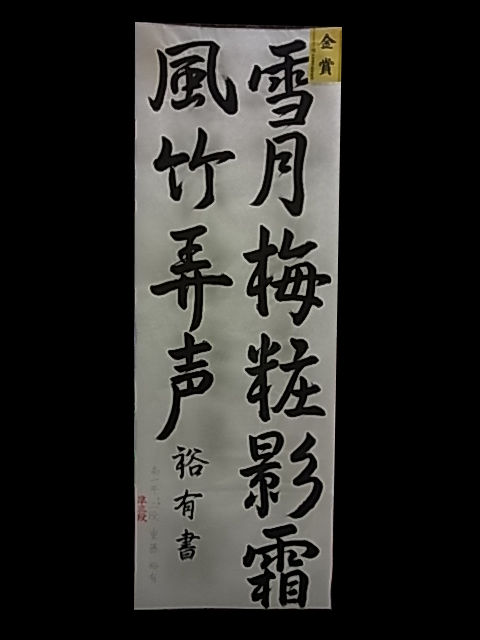 金賞
雪月梅粧影霜
風竹弄声
裕有書
準三段